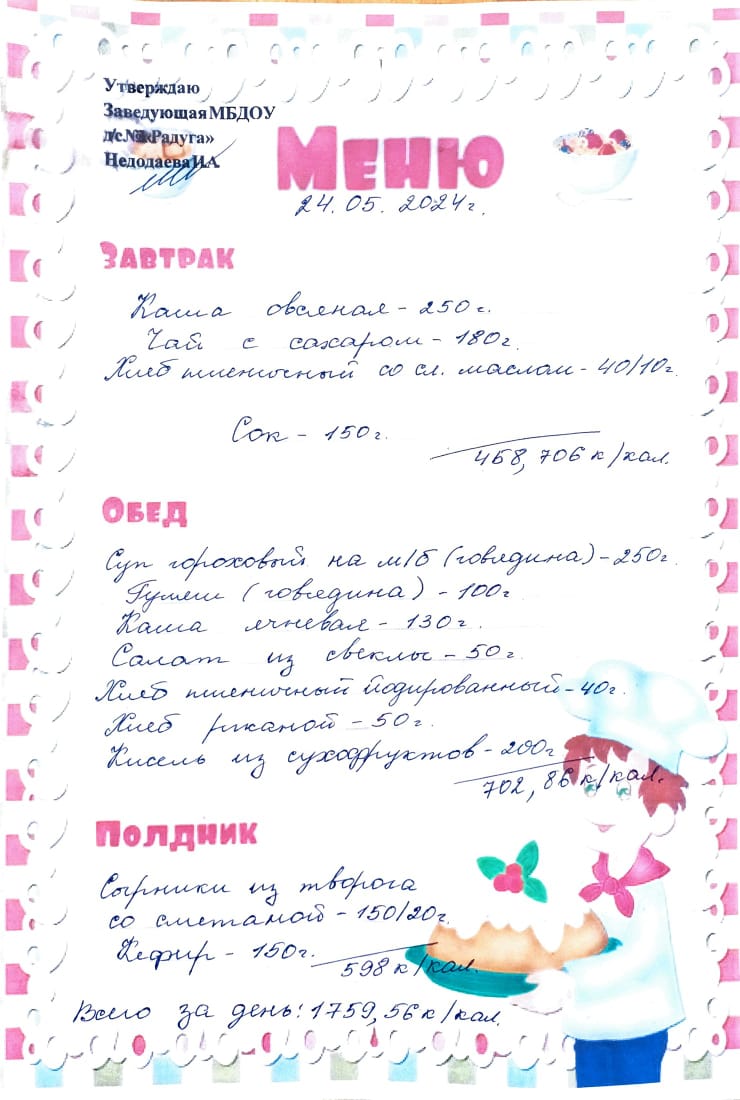 Утверждаю
Заведующая МБДОУ
«Радуга»
Недодаева И.А.
Меню
24.05.2024г.
Завтрак
Каша овсяная - 250г.
Чай с сахаром - 180г.
Хлеб пшеничный со сл. маслом - 40/10г.
Сок - 150г.
458,706 к/кал.
Обед
Суп гороховый на м/б (говядина) - 250г.
Гуляш (говядина) - 100г
Каша ячневая - 130г.
Салат из свеклы - 50г
Хлеб пшеничный йодированный - 40г.
Хлеб ржаной - 50г.
Кисель из сухофруктов - 200г
702,86 к/кал.
Полдник
Сырники из творога
со сметаной - 150/20г.
Кефир - 150г.
598 к/кал.
Всего за день: 1759,56 к/кал.